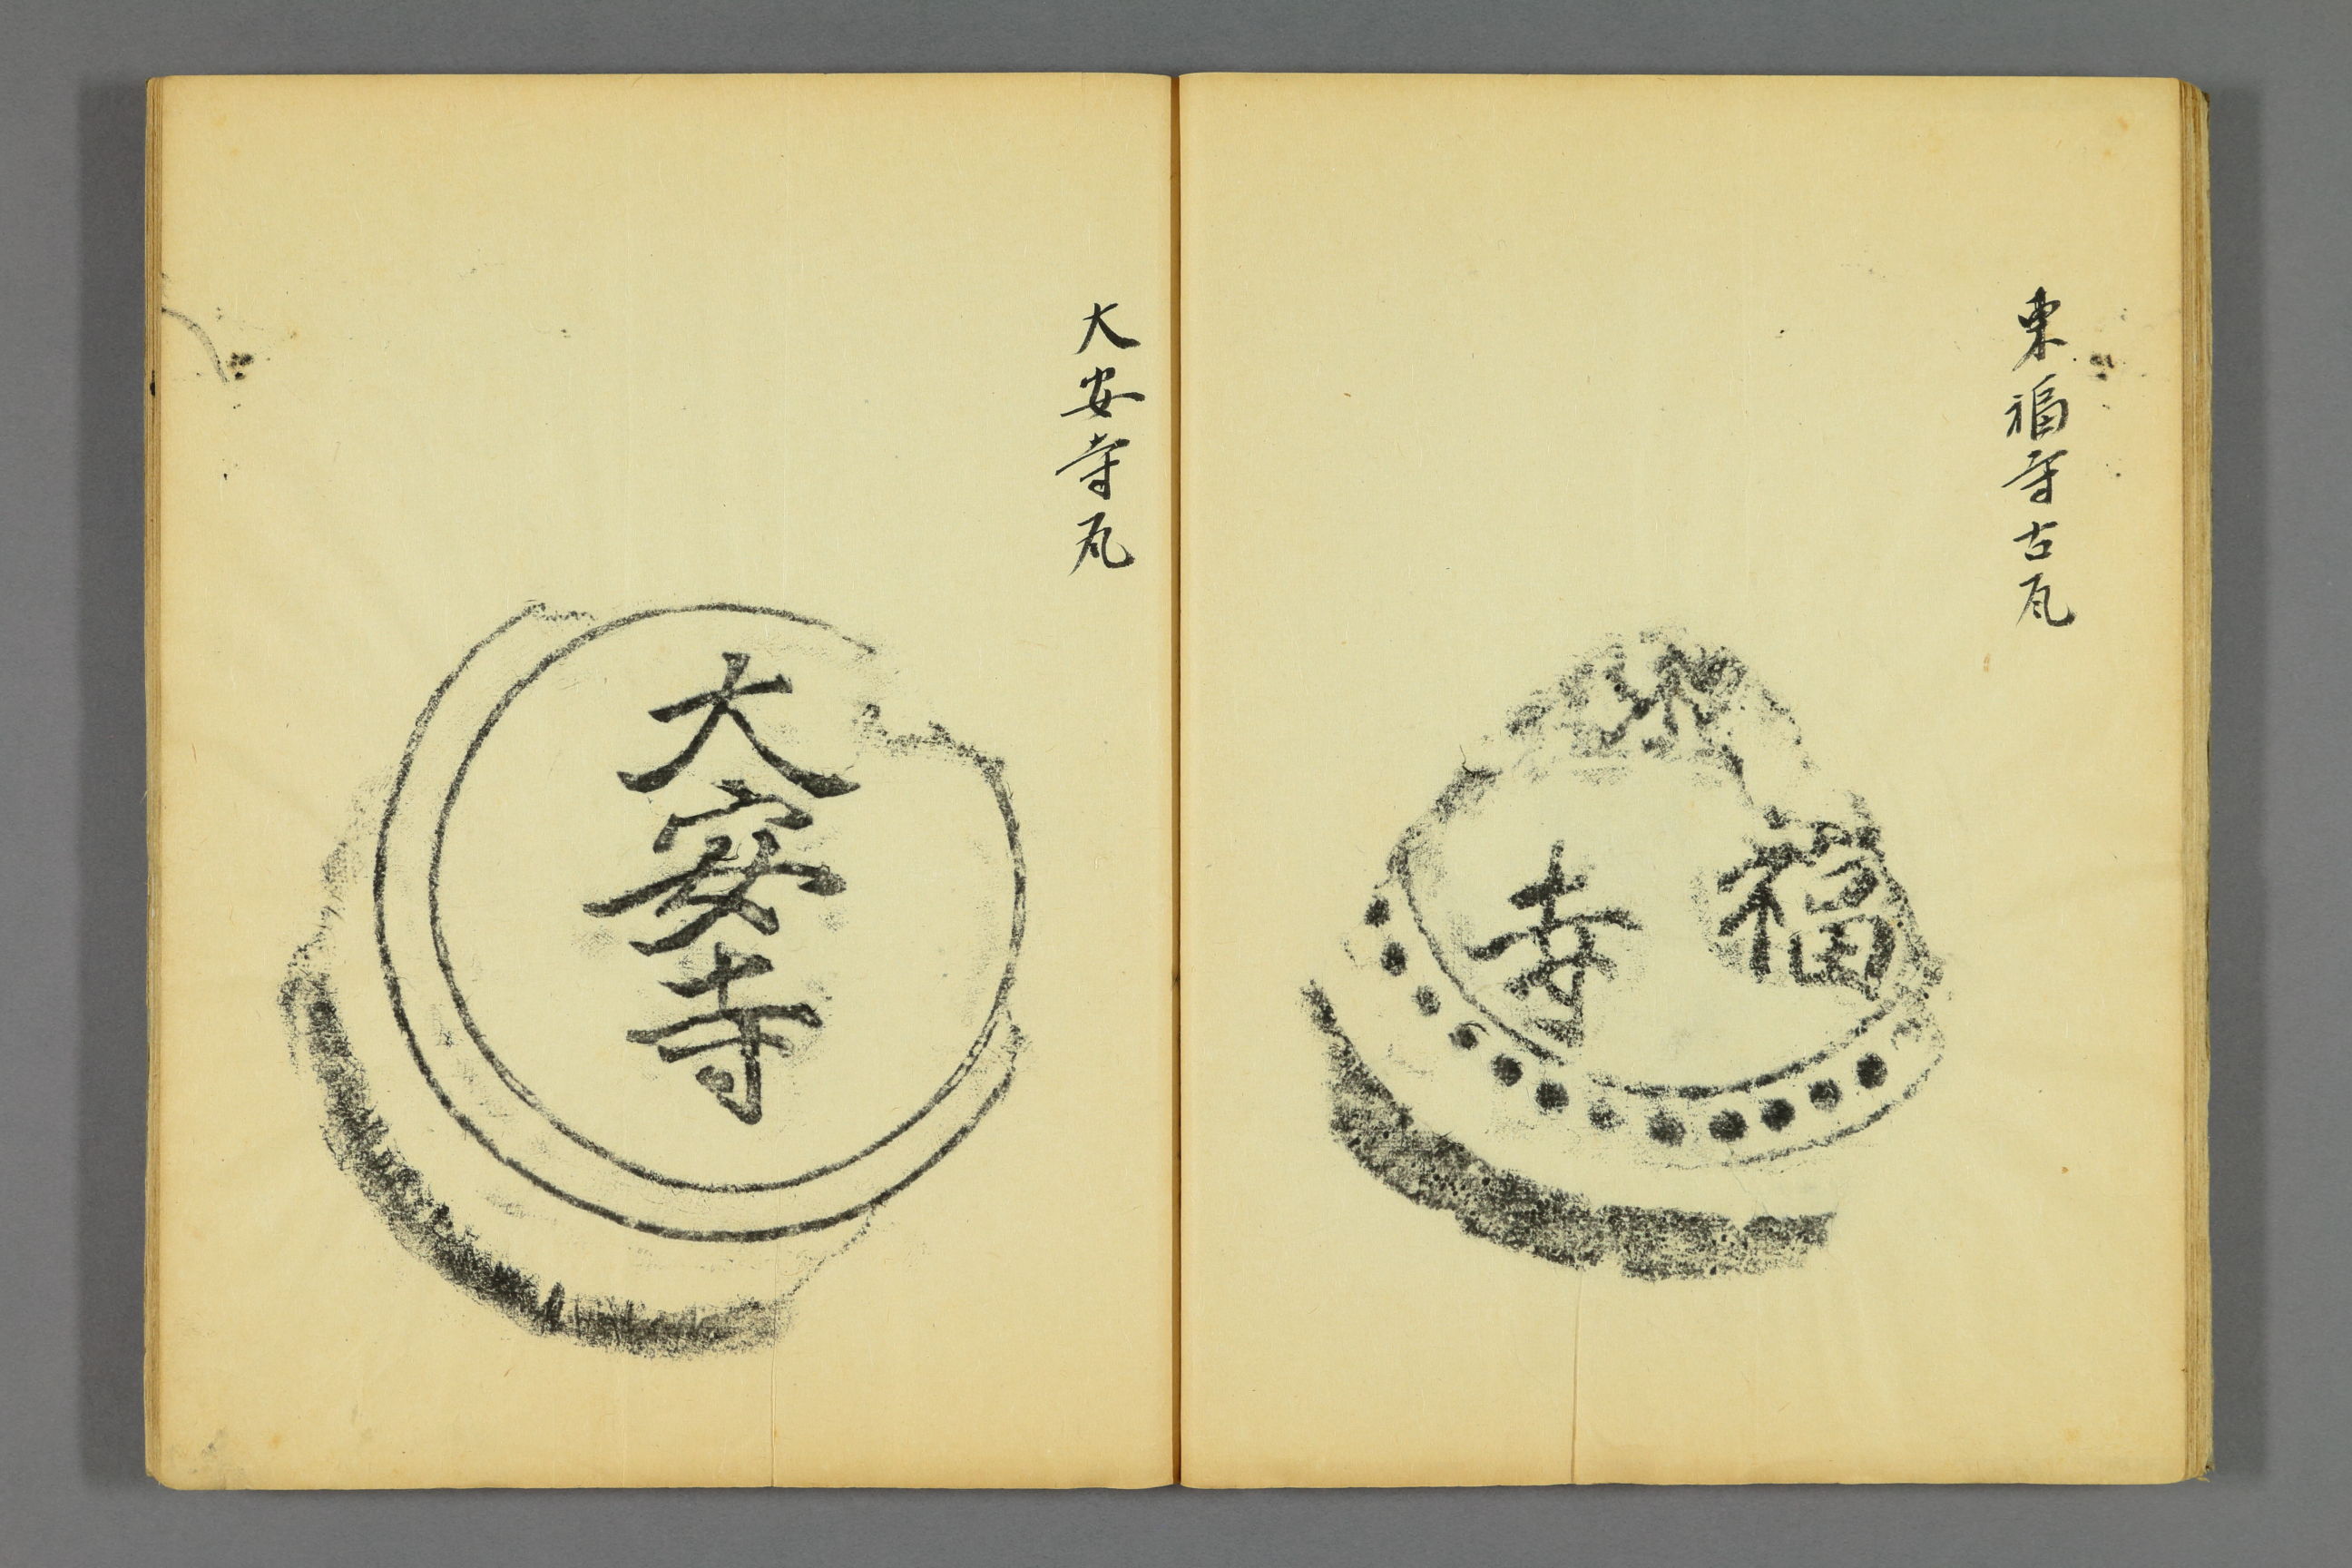 東福寺古瓦
福
寺
大安寺瓦
大安寺